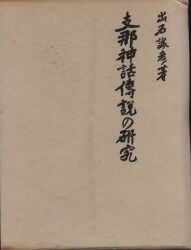 出石誠彦著
支那神話傳説の研究